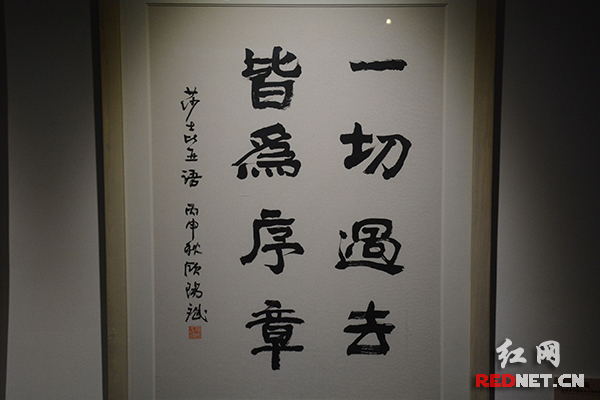 一切過去
皆為序章
莎士比亚语 丙申秋欧阳斌
红网
REDNET.CN